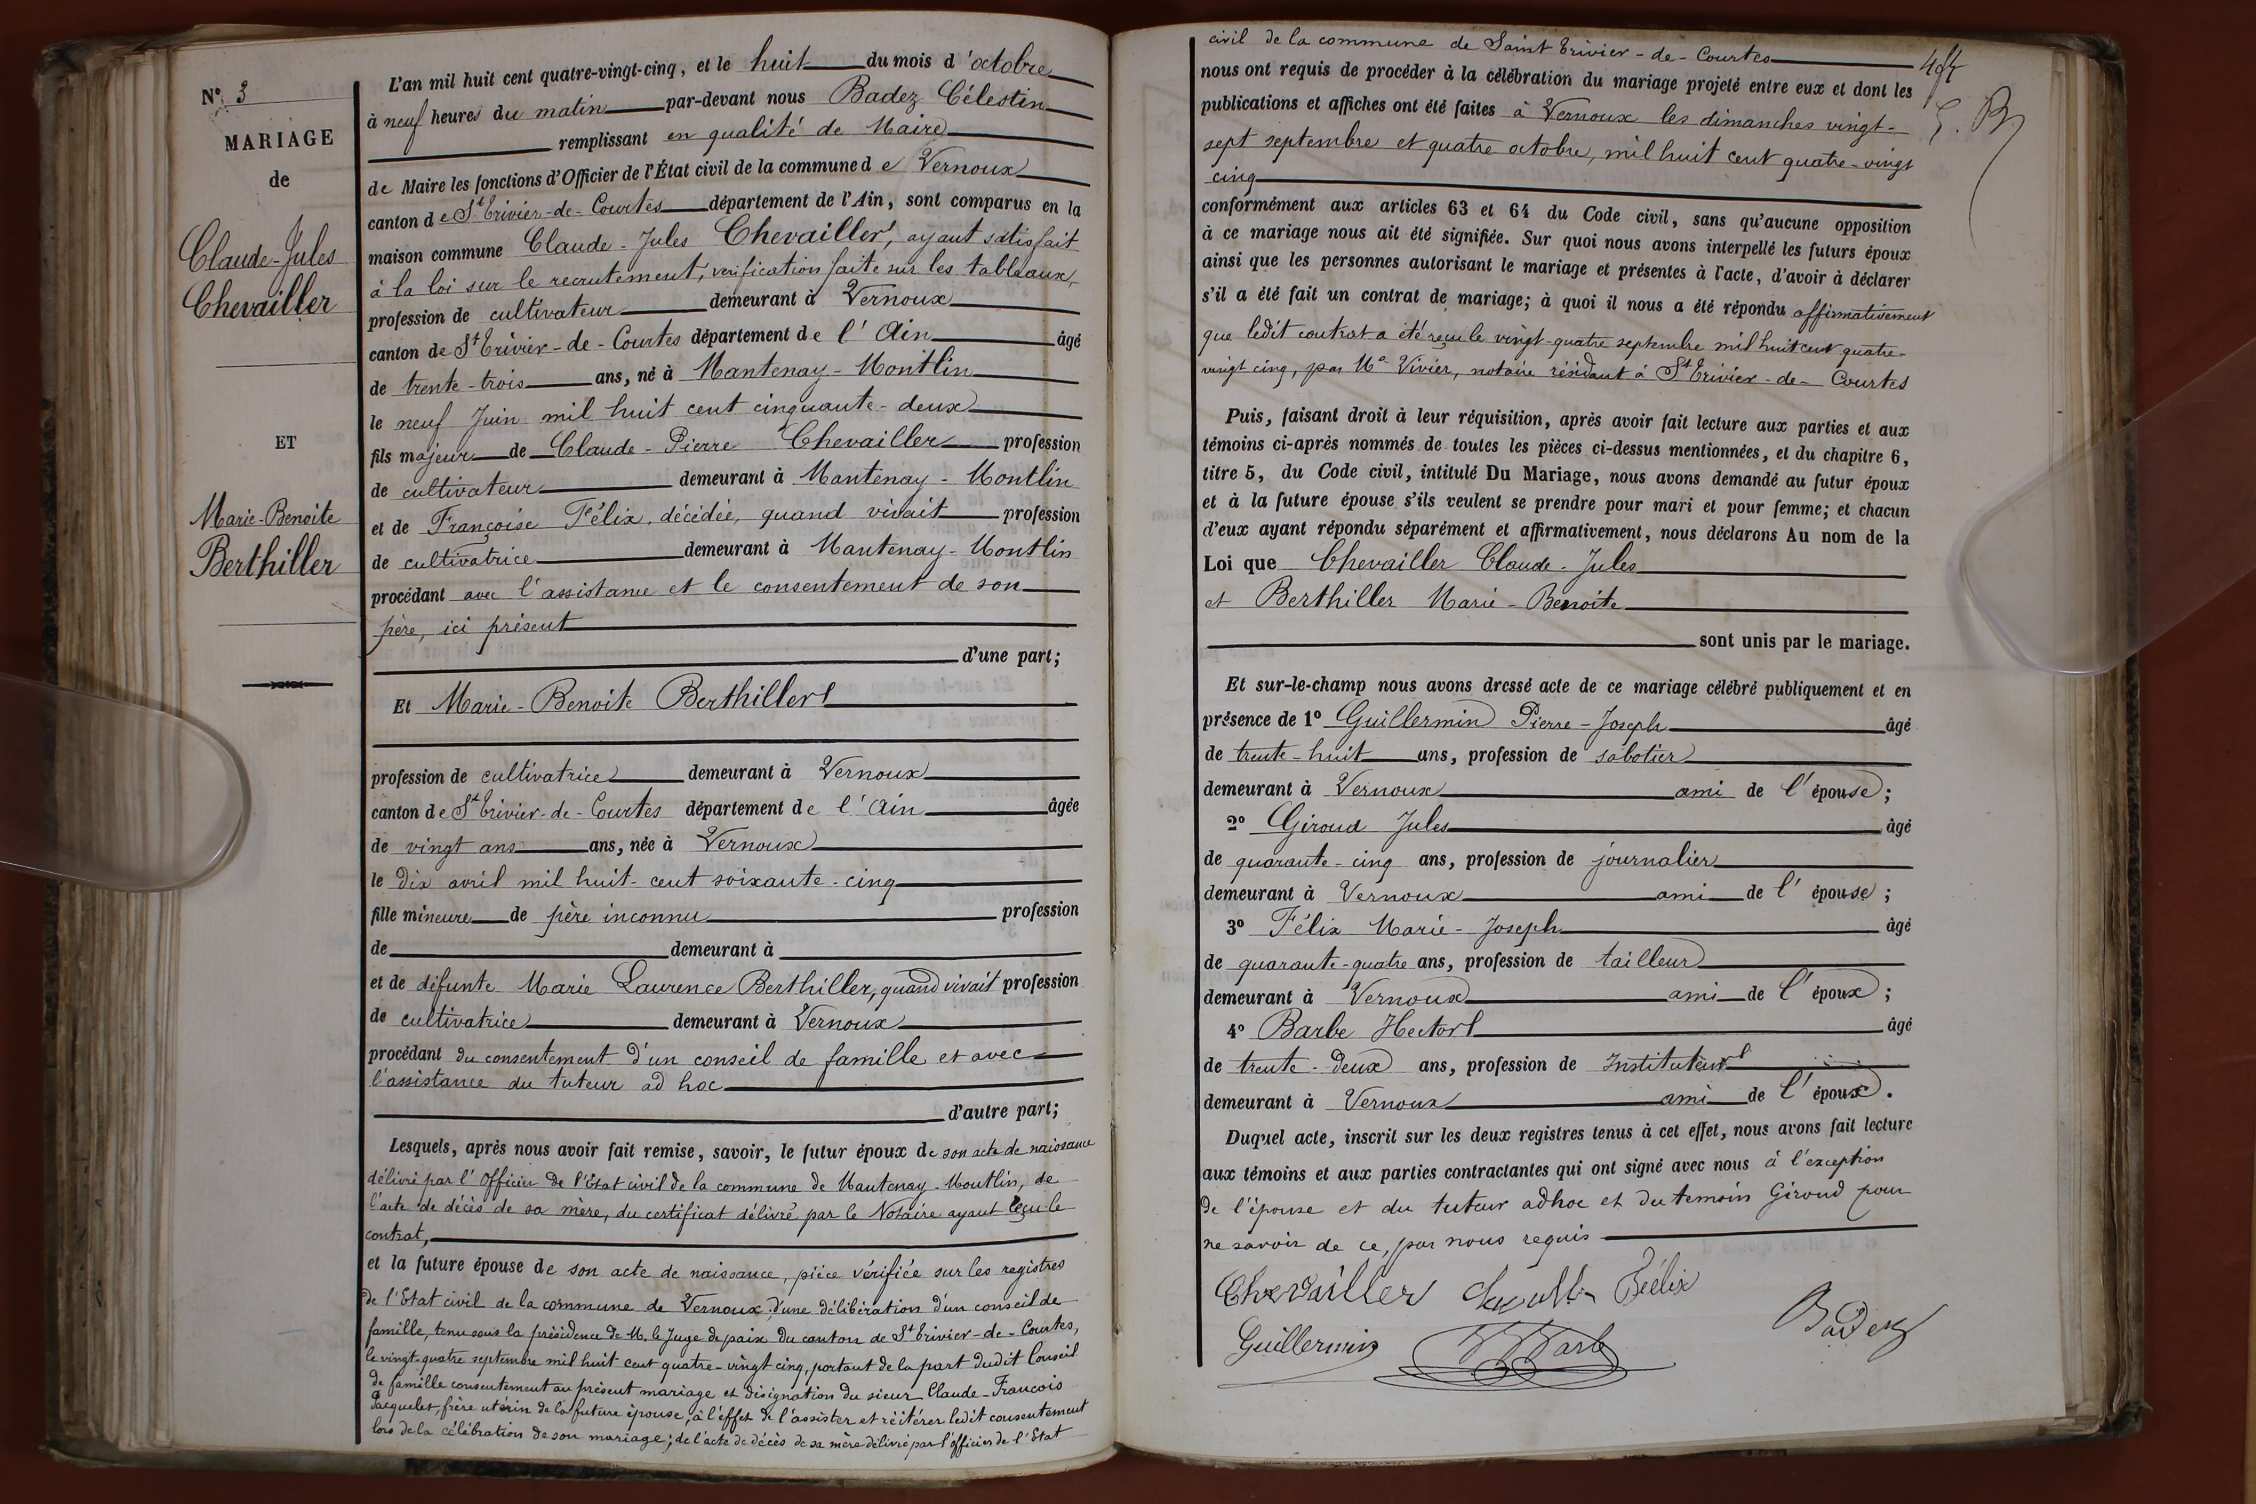 N° 3
MARIAGE
de
Claude-Jules
Chevailler
ET
Marie-Benoite
Berthiller
L'an mil huit cent quatre-vingt-cinq, et le huit du mois d'octobre
à neuf heures du matin par-devant nous Badez Célestin
remplissant en qualité de Maire
de Maire les fonctions d'Officier de l'État civil de la commune de Vernoux
canton de St Trivier-de-Courtes département de l'Ain, sont comparus en la
maison commune Claude-Jules Chevailler, ayant satisfait
à la loi sur le recrutement, vérification faite sur les tableaux,
profession de cultivateur demeurant à Vernoux
canton de St Trivier-de-Courtes département de l'Ain âgé
de trente-trois ans, né à Mantenay-Montlin
le neuf Juin mil huit cent cinquante-deux
fils majeur de Claude-Pierre Chevailler profession
de cultivateur demeurant à Mantenay-Montlin
et de Françoise Félix, décédée, quand vivait profession
de cultivatrice demeurant à Mantenay-Montlin
procédant avec l'assistance et le consentement de son
père, ici présent
d'une part;
Et Marie-Benoite Berthiller
profession de cultivatrice demeurant à Vernoux
canton de St Trivier-de-Courtes département de l'Ain âgée
de vingt ans ans, née à Vernoux
le dix avril mil huit-cent soixante-cinq
fille mineure de père inconnu profession
de demeurant à
et de défunte Marie Laurence Berthiller, quand vivait profession
de cultivatrice demeurant à Vernoux
procédant du consentement d'un conseil de famille et avec
l'assistance du tuteur ad hoc
d'autre part;
Lesquels, après nous avoir fait remise, savoir, le futur époux de son acte de naissance
délivré par l'Officier de l'État civil de la commune de Mantenay-Montlin, de
l'acte de décès de sa mère, du certificat délivré par le Notaire ayant reçu le
contrat,
et la future épouse de son acte de naissance, pièce vérifiée sur les registres
de l'Etat civil de la commune de Vernoux, d'une délibération d'un conseil de
famille, tenu sous la présidence de M. le Juge de paix du canton de St Trivier-de-Courtes,
le vingt-quatre septembre mil huit cent quatre-vingt cinq, portant de la part dudit Conseil
de famille consentement au présent mariage et désignation du sieur Claude-François
Jacquelet, frère utérin de la future épouse, à l'effet de l'assister et réitérer ledit consentement
lors de la célébration de son mariage; de l'acte de décès de sa mère délivré par l'officier de l'Etat
civil de la commune de Saint Trivier-de-Courtes
nous ont requis de procéder à la célébration du mariage projeté entre eux et dont les
publications et affiches ont été faites à Vernoux les dimanches vingt-
sept septembre et quatre octobre, mil huit cent quatre-vingt
cinq
conformément aux articles 63 et 64 du Code civil, sans qu'aucune opposition
à ce mariage nous ait été signifiée. Sur quoi nous avons interpellé les futurs époux
ainsi que les personnes autorisant le mariage et présentes à l'acte, d'avoir à déclarer
s'il a été fait un contrat de mariage; à quoi il nous a été répondu affirmativement
que ledit contrat a été reçu le vingt-quatre septembre mil huit cent quatre-
vingt cinq, par Me Vivier, notaire résidant à St Trivier-de-Courtes
Puis, faisant droit à leur réquisition, après avoir fait lecture aux parties et aux
témoins ci-après nommés de toutes les pièces ci-dessus mentionnées, et du chapitre 6,
titre 5, du Code civil, intitulé Du Mariage, nous avons demandé au futur époux
et à la future épouse s'ils veulent se prendre pour mari et pour femme; et chacun
d'eux ayant répondu séparément et affirmativement, nous déclarons Au nom de la
Loi que Chevailler Claude-Jules
et Berthiller Marie-Benoite
sont unis par le mariage.
Et sur-le-champ nous avons dressé acte de ce mariage célébré publiquement et en
présence de 1° Guillermin Pierre-Joseph âgé
de trente-huit ans, profession de sabotier
demeurant à Vernoux ami de l'épouse;
2° Giroud Jules âgé
de quarante-cinq ans, profession de journalier
demeurant à Vernoux ami de l'épouse;
3° Félix Marie-Joseph âgé
de quarante-quatre ans, profession de tailleur
demeurant à Vernoux ami de l'époux;
4° Barbe Hector âgé
de trente-deux ans, profession de Instituteur
demeurant à Vernoux ami de l'époux.
Duquel acte, inscrit sur les deux registres tenus à cet effet, nous avons fait lecture
aux témoins et aux parties contractantes qui ont signé avec nous à l'exception
de l'épouse et du tuteur adhoc et du temoin Giroud pour
ne savoir de ce, par nous requis
Chevailler Félix
Guillermin Barbe Badez